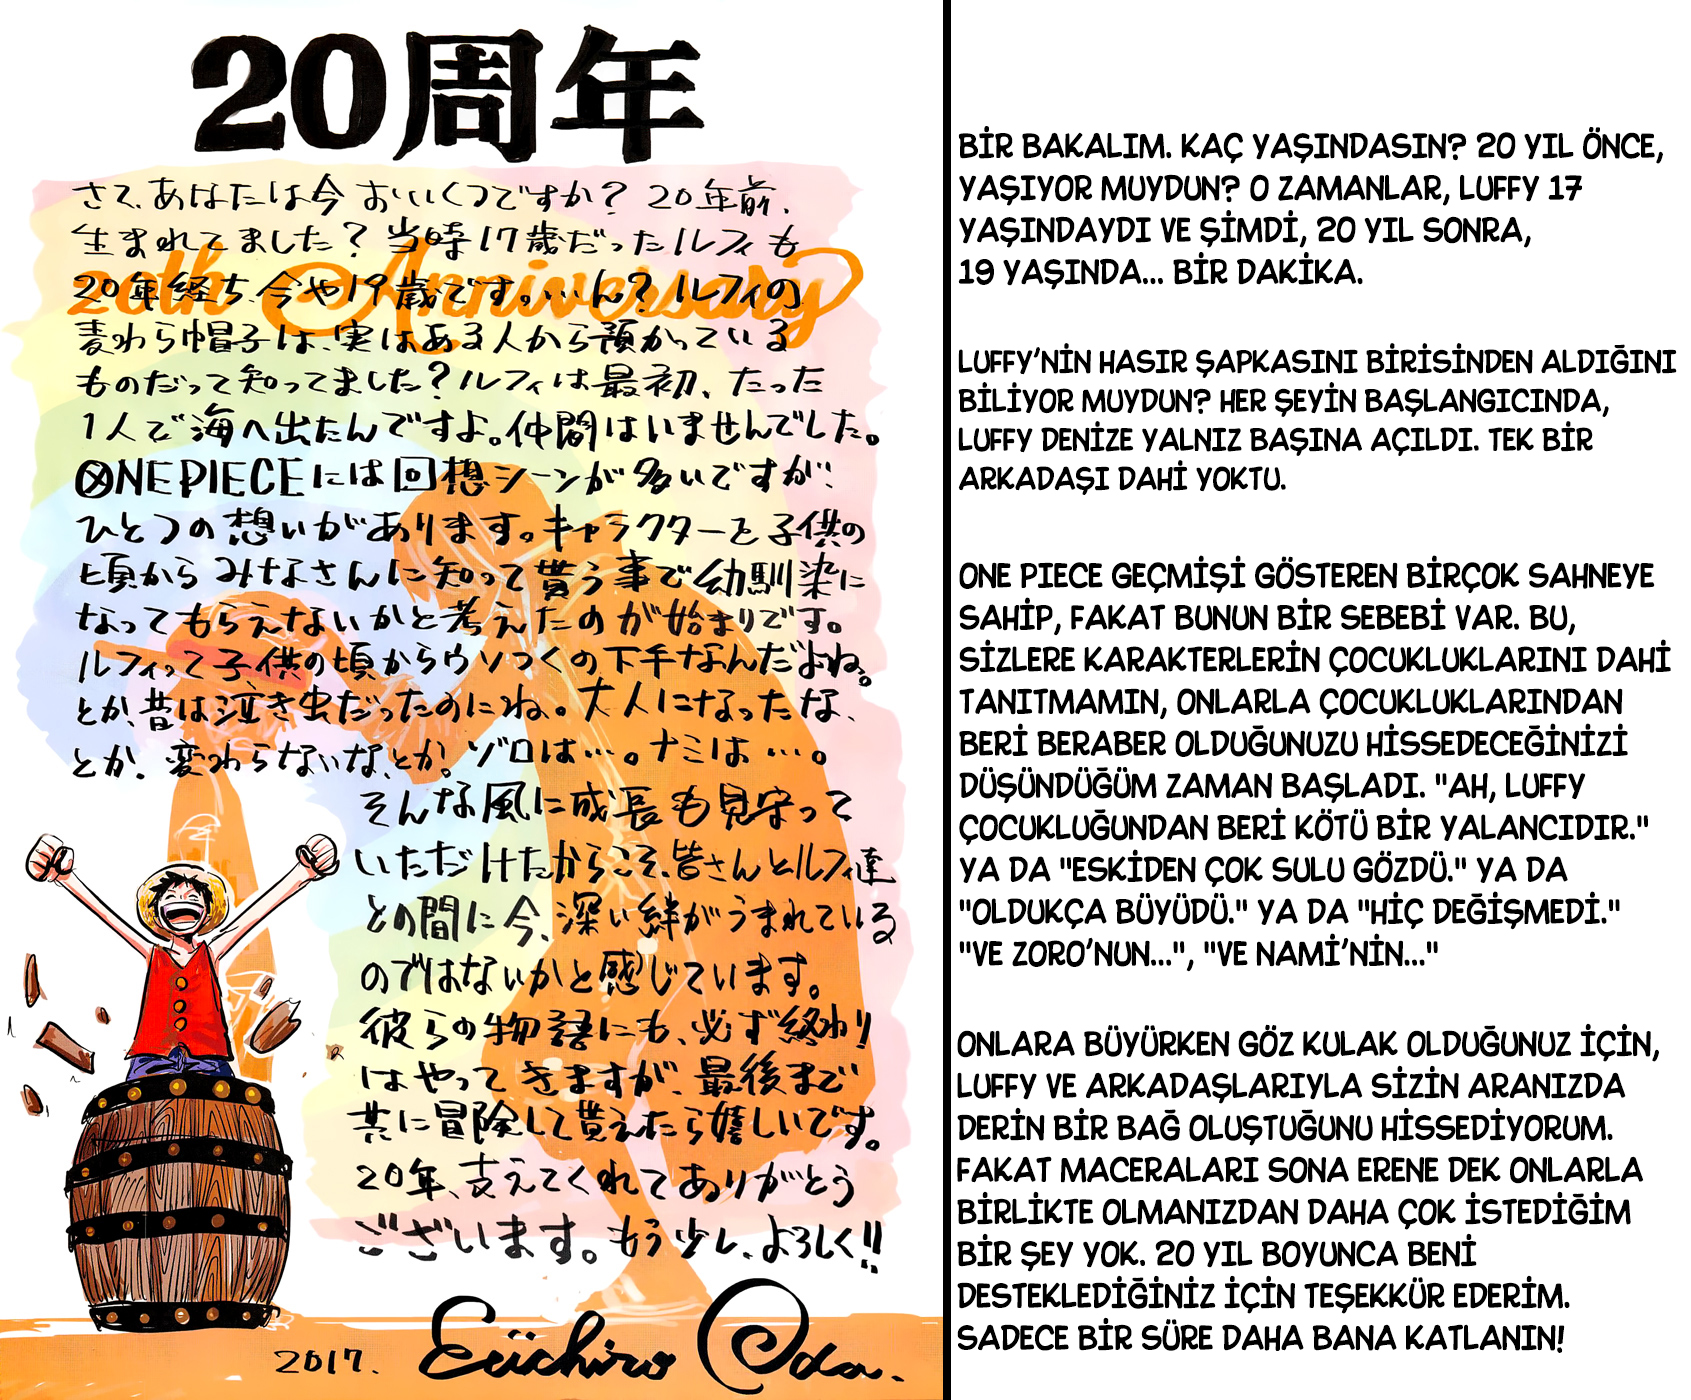 20周年
さて、あなたは今おいくつですか？20年前、
生まれてました？当時17歳だったルフィも
20th Anniversary
20年経ち、今や19歳です。…ん？ルフィの
麦わら帽子は、実はある人から預かっている
ものだって知ってました？ルフィは最初、たった
1人で海へ出たんですよ。仲間はいませんでした。
ONE PIECEには回想シーンが多いですが、
ひとつの想いがあります。キャラクターを子供の
頃からみなさんに知って貰う事で幼馴染に
なってもらえないかと考えたのが始まりです。
ルフィって子供の頃からウソつくの下手なんだよね。
とか、昔は泣き虫だったのにね。大人になったな、
とか。変わらないな、とか。ゾロは…。ナミは…。
そんな風に成長も見守って
いただけたからこそ、皆さんとルフィ達
との間に今、深い絆がうまれている
のではないかと感じています。
彼らの物語にも、必ず終わり
はやってきますが、最後まで
共に冒険して貰えたら嬉しいです。
20年、支えてくれてありがとう
ございます。もう少し、よろしく!!
2017. Eiichiro Oda.
BİR BAKALIM. KAÇ YAŞINDASIN? 20 YIL ÖNCE,
YAŞIYOR MUYDUN? O ZAMANLAR, LUFFY 17
YAŞINDAYDI VE ŞİMDİ, 20 YIL SONRA,
19 YAŞINDA... BİR DAKİKA.
LUFFY'NİN HASIR ŞAPKASINI BİRİSİNDEN ALDIĞINI
BİLİYOR MUYDUN? HER ŞEYİN BAŞLANGICINDA,
LUFFY DENİZE YALNIZ BAŞINA AÇILDI. TEK BİR
ARKADAŞI DAHİ YOKTU.
ONE PIECE GEÇMİŞİ GÖSTEREN BİRÇOK SAHNEYE
SAHİP, FAKAT BUNUN BİR SEBEBİ VAR. BU,
SİZLERE KARAKTERLERİN ÇOCUKLUKLARINI DAHİ
TANITMAMIN, ONLARLA ÇOCUKLUKLARINDAN
BERİ BERABER OLDUĞUNUZU HİSSEDECEĞİNİZİ
DÜŞÜNDÜĞÜM ZAMAN BAŞLADI. "AH, LUFFY
ÇOCUKLUĞUNDAN BERİ KÖTÜ BİR YALANCIDIR."
YA DA "ESKİDEN ÇOK SULU GÖZDÜ." YA DA
"OLDUKÇA BÜYÜDÜ." YA DA "HİÇ DEĞİŞMEDİ."
"VE ZORO'NUN...", "VE NAMİ'NİN..."
ONLARA BÜYÜRKEN GÖZ KULAK OLDUĞUNUZ İÇİN,
LUFFY VE ARKADAŞLARIYLA SİZİN ARANIZDA
DERİN BİR BAĞ OLUŞTUĞUNU HİSSEDİYORUM.
FAKAT MACERALARI SONA ERENE DEK ONLARLA
BİRLİKTE OLMANIZDAN DAHA ÇOK İSTEDİĞİM
BİR ŞEY YOK. 20 YIL BOYUNCA BENİ
DESTEKLEDİĞİNİZ İÇİN TEŞEKKÜR EDERİM.
SADECE BİR SÜRE DAHA BANA KATLANIN!